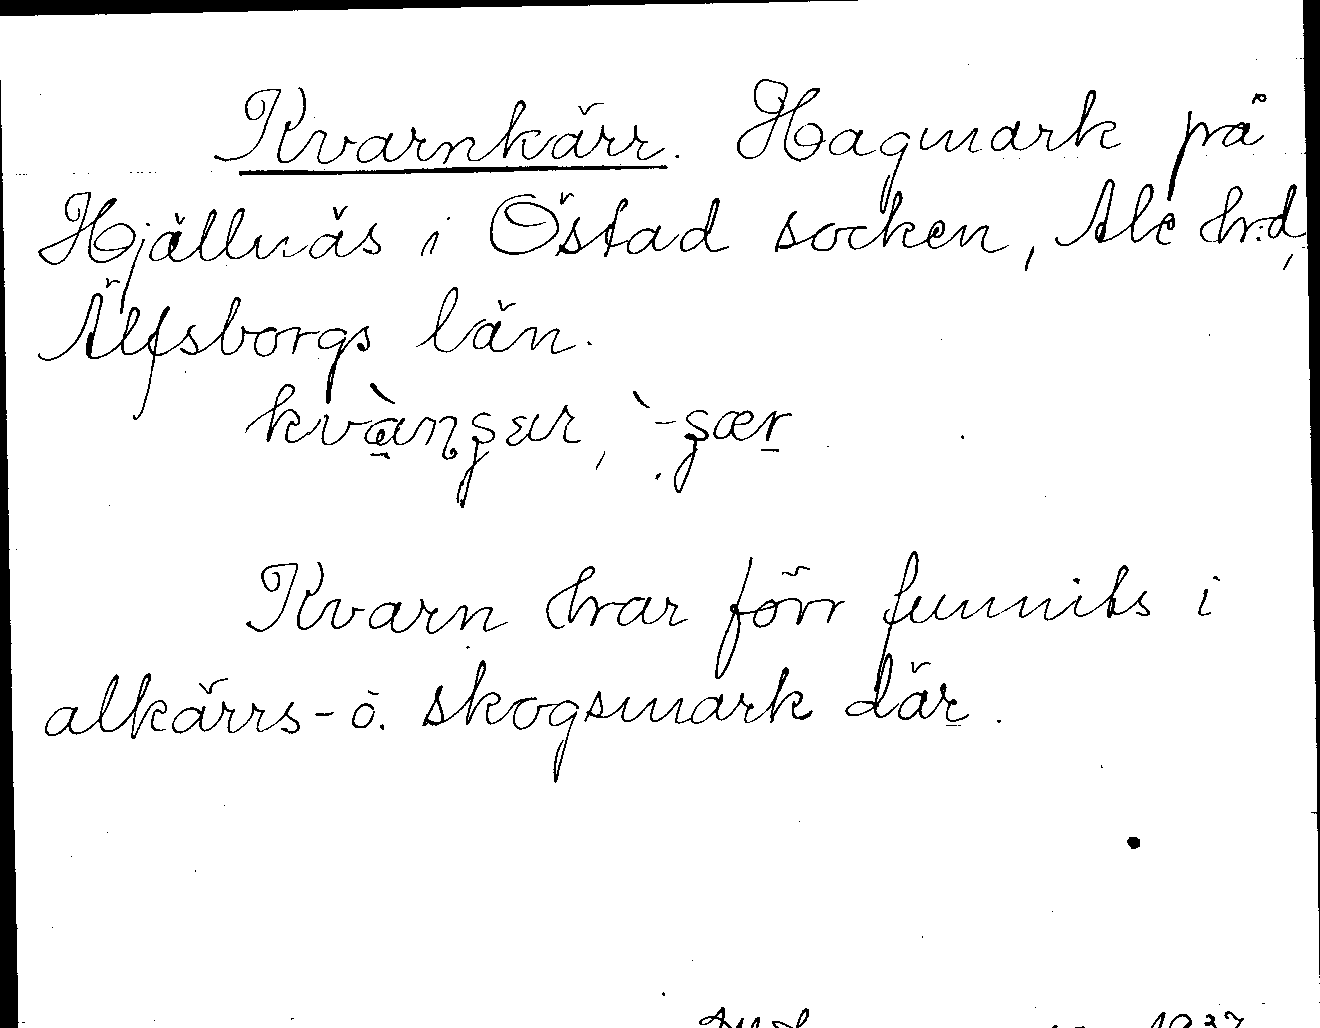 Kvarnkärr. Hagmark på
Hjällnäs i Östad socken, Ale hrd,
Älfsborgs län.
Kvarn har förr funnits i
alkärrs- o. skogsmark där.
1937